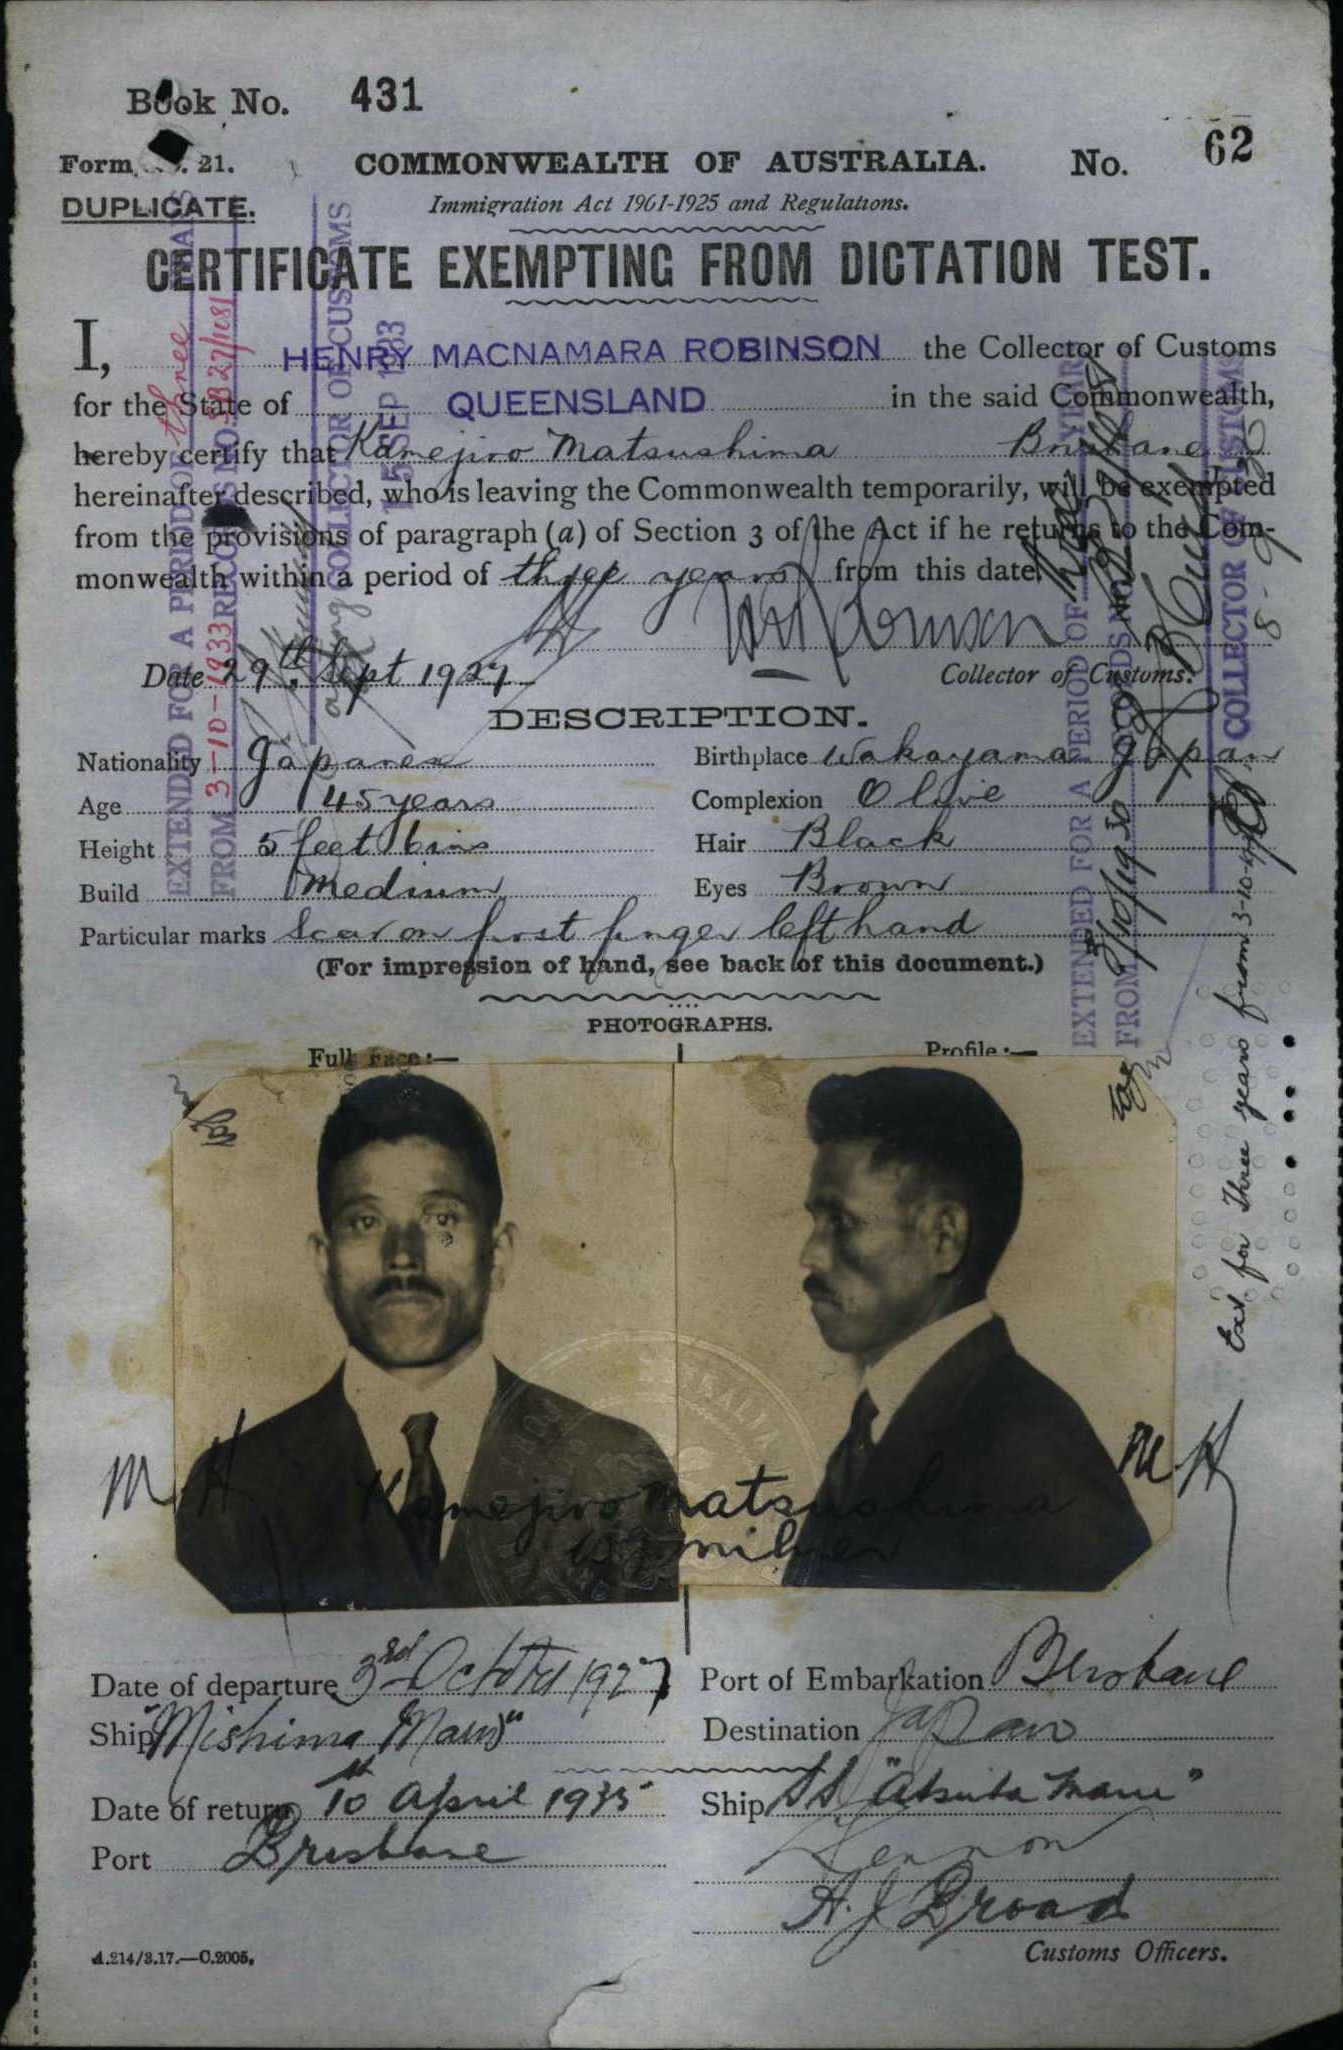 Book No. 431
Form No. 21. COMMONWEALTH OF AUSTRALIA. No. 62
DUPLICATE. Immigration Act 1901-1925 and Regulations.
CERTIFICATE EXEMPTING FROM DICTATION TEST.
I, HENRY MACNAMARA ROBINSON the Collector of Customs
for the State of QUEENSLAND in the said Commonwealth,
hereby certify that Kamejiro Matsushima Brisbane
hereinafter described, who is leaving the Commonwealth temporarily, will be exempted
from the provisions of paragraph (a) of Section 3 of the Act if he returns to the Com-
monwealth within a period of three years from this date.
Date 29th Sept 1927 Collector of Customs.
DESCRIPTION.
Nationality Japanese Birthplace Wakayama Japan
Age 45 years Complexion Olive
Height 5 feet 6 ins Hair Black
Build Medium Eyes Brown
Particular marks Scar on first finger left hand
(For impression of hand, see back of this document.)
PHOTOGRAPHS.
Full Face:— Profile:—
M H M H
Kamejiro Matsushima
Date of departure 3rd October 1927 Port of Embarkation Brisbane
Ship "Mishima Maru" Destination Japan
Date of return 10th April 1935 Ship SS "Atsuta Maru"
Port Brisbane
H. J. Broad
A.214/3.17.—C.2005. Customs Officers.
EXTENDED FOR A PERIOD OF three YEARS
FROM 3-10-1933 RECORDS NO.
COLLECTOR OF CUSTOMS
15 SEP 1933
EXTENDED FOR A PERIOD OF YEARS
FROM 3/10/1930 RECORDS NO.
COLLECTOR OF CUSTOMS
Ext for Three years from 3-10-